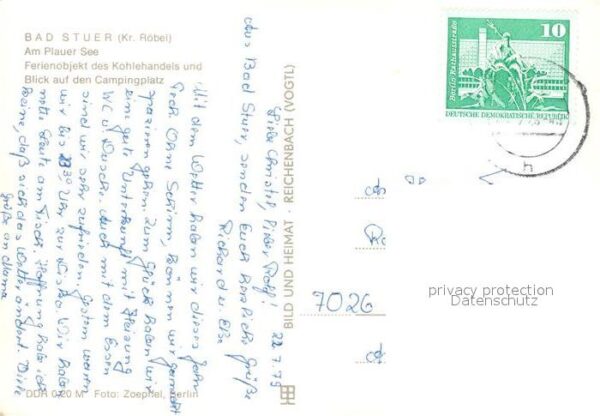 BAD STUER (Kr. Röbel)
Am Plauer See
Ferienobjekt des Kohlehandels und
Blick auf den Campingplatz
22.7.79
Liebe Christel, lieber Rolf!
Aus Bad Stuer, senden Euch herzliche Grüße
Richard u. Else
Mit dem Wetter haben wir dieses Jahr
Pech. Ohne Schirm, können wir garnicht
spazieren gehen. Zum Glück haben wir
eine gute Unterkunft mit Heizung
WC u. Dusche. Auch mit dem Essen
sind wir sehr zufrieden. Gestern waren
wir bis 23 Uhr zur Disko. Wir haben
nette Leute am Tisch. Hoffnung habe ich
keine, daß sich das Wetter ändert. Viele
Grüße an Mama
BILD UND HEIMAT · REICHENBACH (VOGTL)
DDR 0,20 M Foto: Zoephel, Berlin
10
Berlin Rathausstraße
DEUTSCHE DEMOKRATISCHE REPUBLIK
7026
privacy protection
Datenschutz